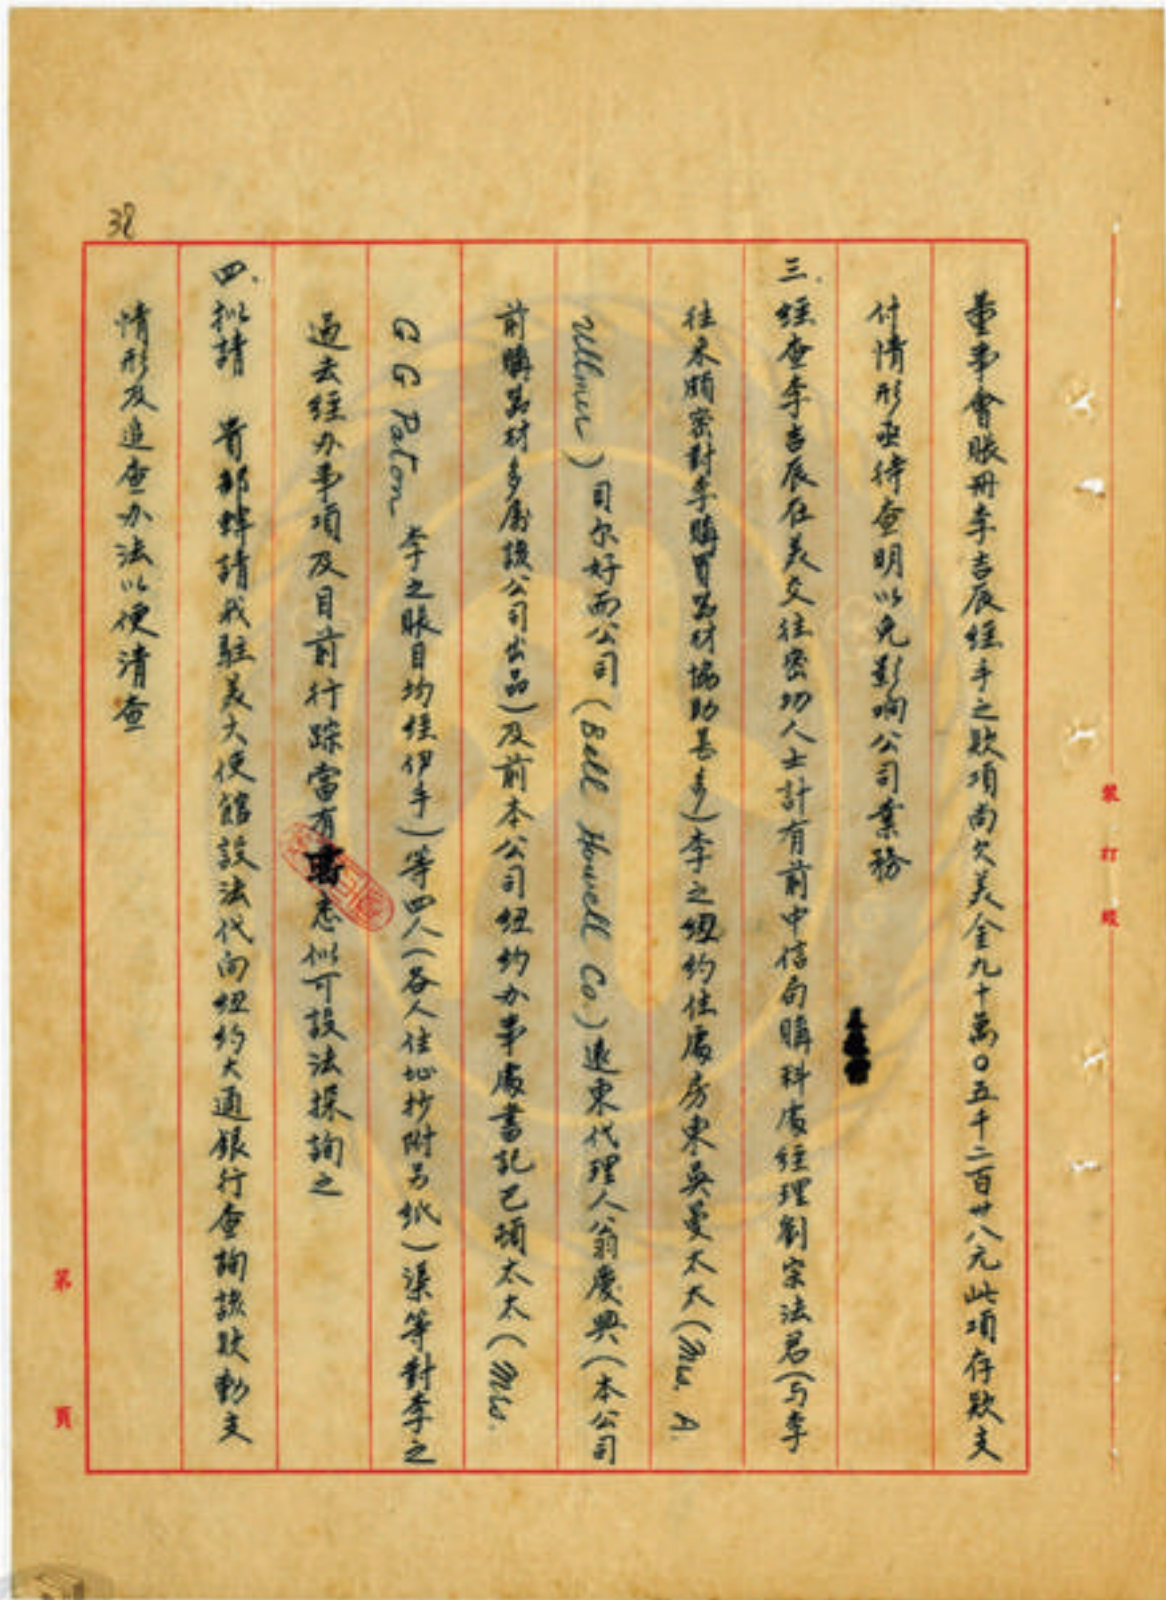 董事會賬冊李吉辰經手之欵項尚欠美金九十萬0五千二百廿八元此項存欵支
付情形亟待查明以免影响公司業務
三.經查李吉辰在美交往密切人士計有前中信局購料處經理劉宗法君(与李
往來頗密對李購買器材協助甚多)李之紐約住處房東吳曼太太(Mrs. A.
Ullmer)貝尔好而公司(Bell Howell Co.)遠東代理人翁慶典(本公司
前購器材多屬該公司出品)及前本公司紐約办事處書記巴頓太太(Mrs.
G G Paton 李之賬目均經伊手)等四人(各人住址抄附另紙)渠等對李之
過去經办事項及目前行踪當有 悉似可設法探詢之
四.擬請 貴部轉請我駐美大使館設法代向紐約大通銀行查詢該欵動支
情形及追查办法以便清查
38
裝 訂 線
第 頁